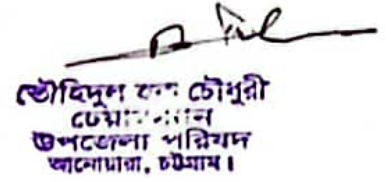 তৌহিদুল হক চৌধুরী
চেয়ারম্যান
উপজেলা পরিষদ
আনোয়ারা, চট্টগ্রাম।